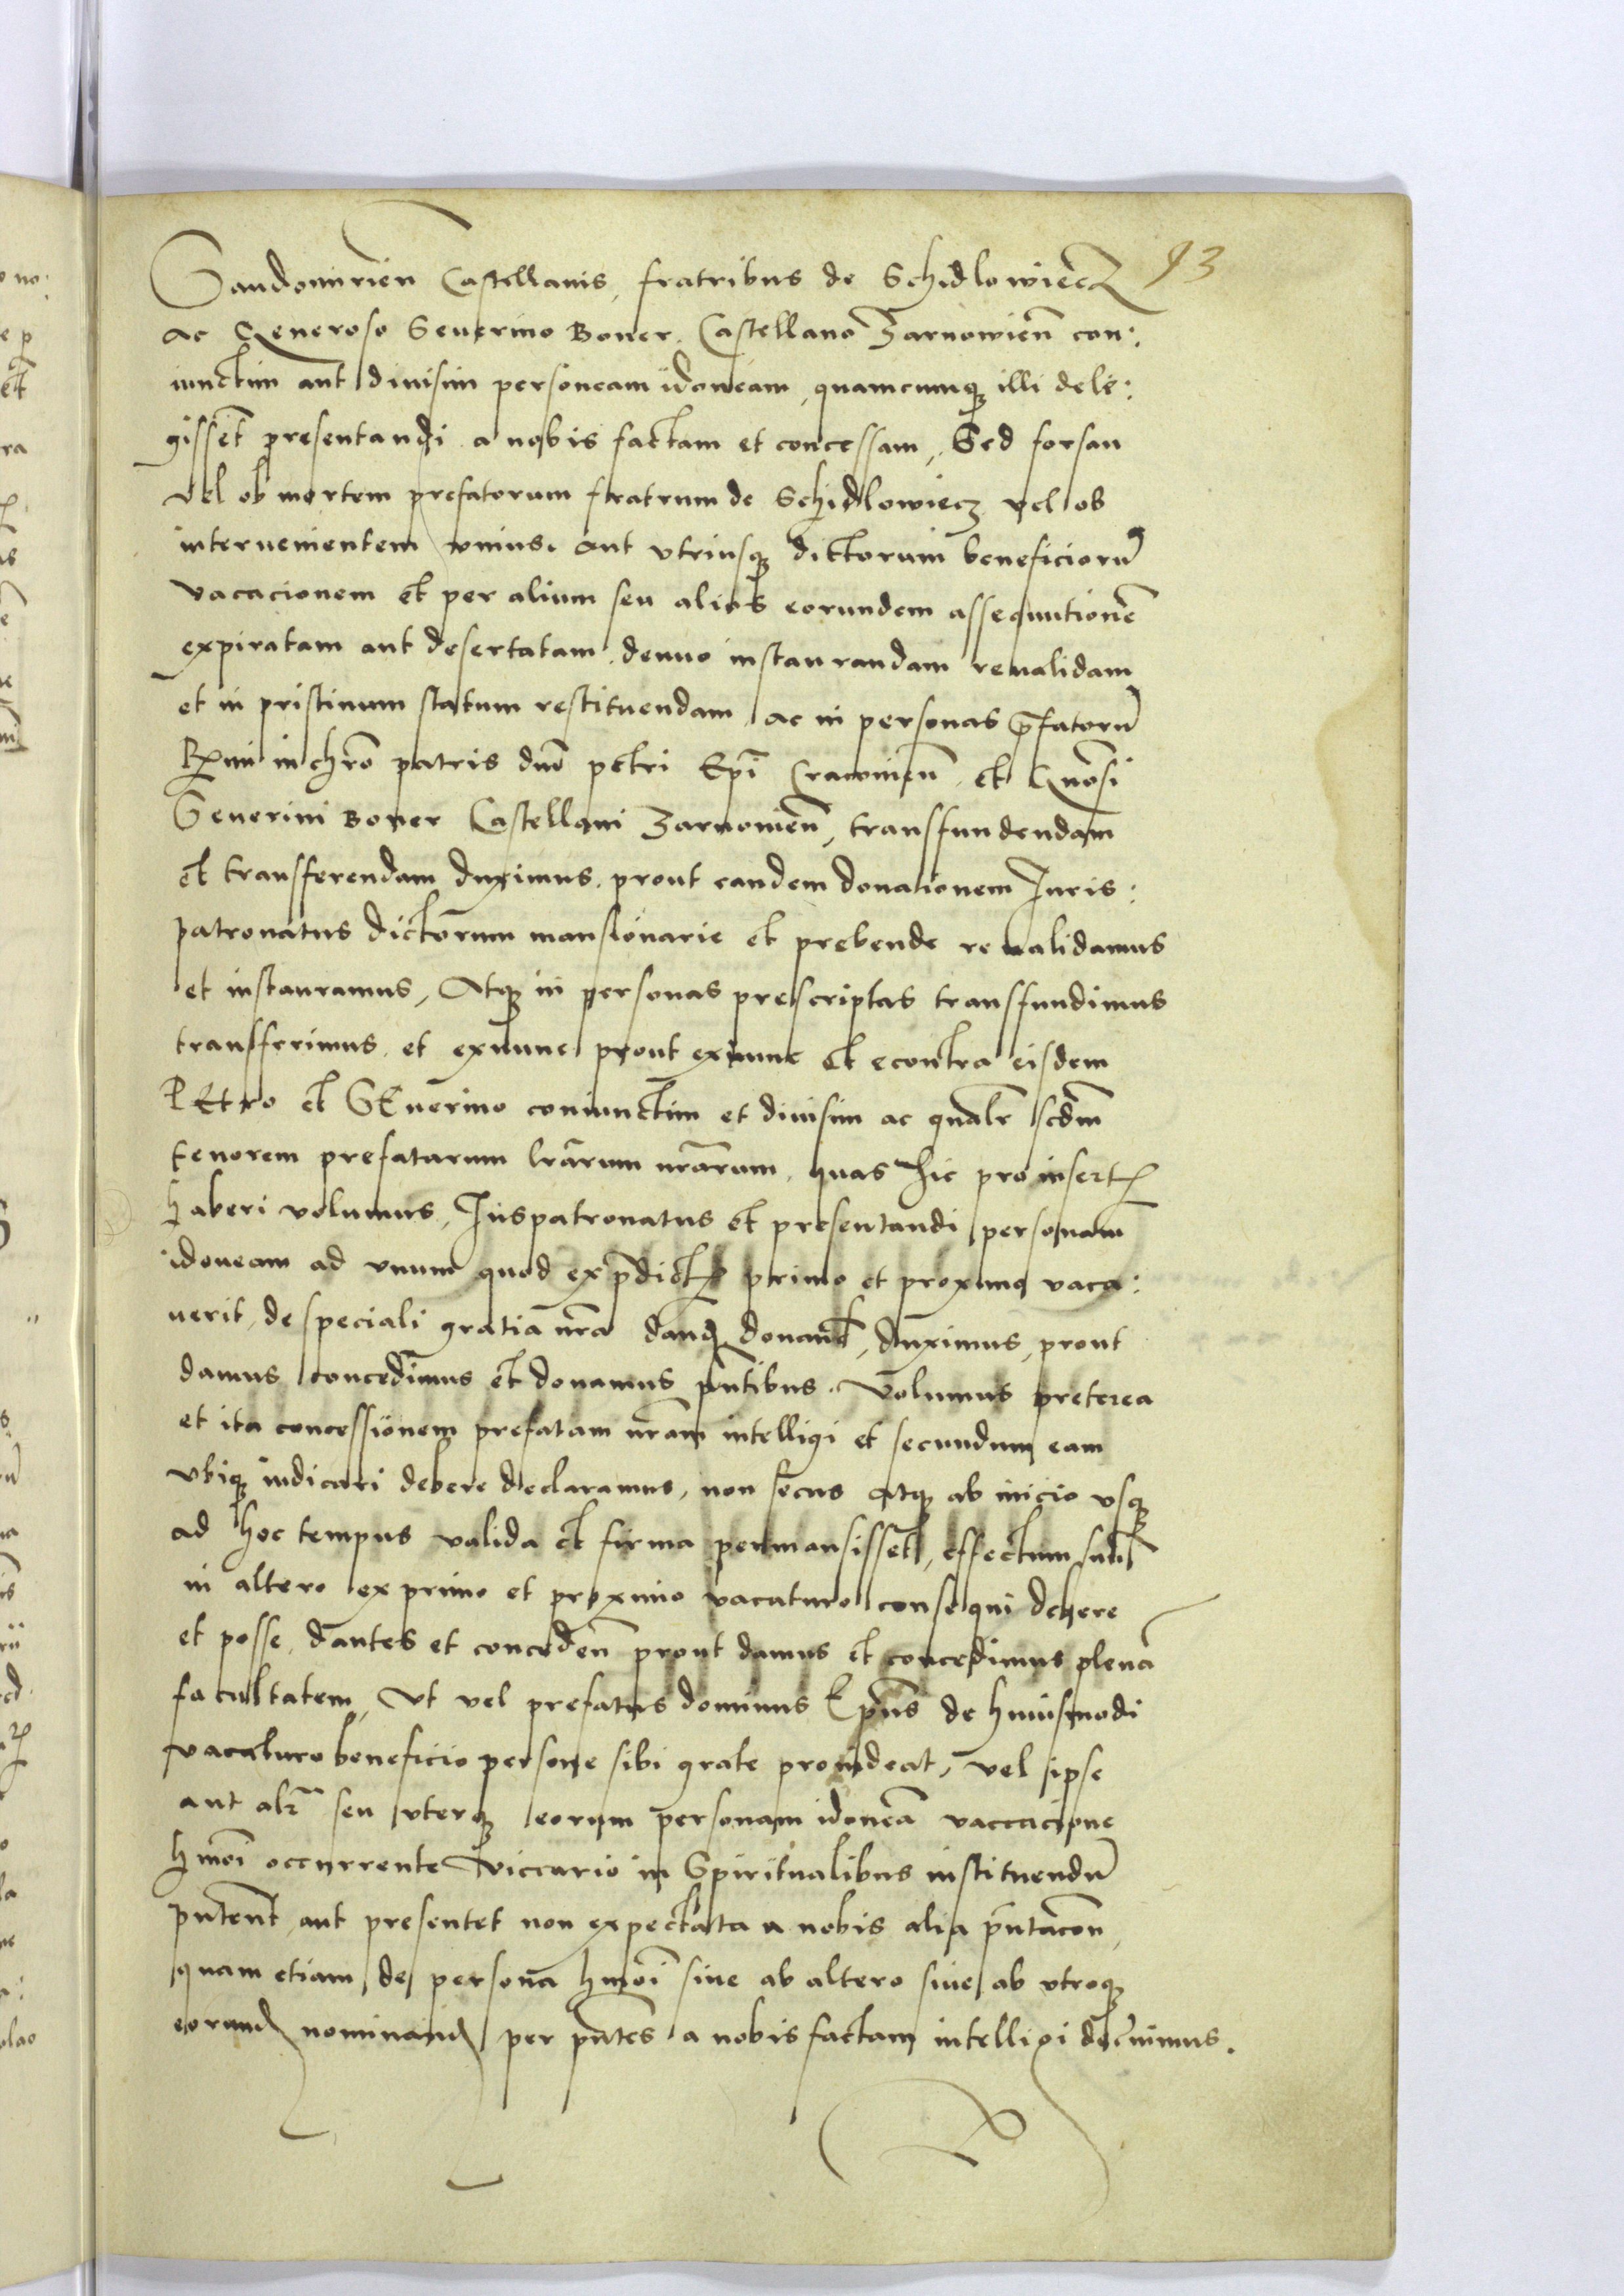 93
Sandomirien Castellanis, fratribus de Schidlowiecz
ac Generoso Seuerino Boner Castellano Zarnowien̄ con:
iunctim aut diuisim personeam idoneam, quamcumqꝫ illi dele:
gissēt presentandi a nobis factam et concessam, Sed forsan
vel ob mortem prefatorum fratrum de Schidlowiecz vel ob
interuenientem vnius aut vtriusqꝫ dictorum beneficiorū
vacacionem et per alium seu alios eorundem assequutionē
expiratam aut desertatam denuo instaurandam reualidam
et in pristinum statum restituendam, ac in personas p̄fatorū
Rx̄mi in chrō patris dn̄i petri Ep̄i Cracouien̄ et Gn̄osi
Seuerini Boner Castellani Zarnouien̄, transfundendam
et transferendam duximus. prout eandem donationem Iuris:
patronatus dictorum mansionarie et prebende reualidamus
et instauramus, Atqꝫ in personas prescriptas transfundimus
transferimus et exnunc prout exnunc et econtra eisdem
PEtro et SEuerino coniunctim et diuisim ac qualr̄ scd̄m
tenorem prefatarum lr̄arum nr̄arum, quas hic pro insertꝭ
haberi volumus, Iuspatronatus et presentandi personam
idoneam ad vnum quod ex p̄dictꝭ primo et proximo vaca:
uerit, de speciali gratia nr̄a dand̄ donand̄, duximus, prout
damus concedimus et donamus pn̄tibus. Volumus preterea
et ita concessionem prefatam nr̄am intelligi et secundum eam
vbiqꝫ iudicari debere declaramus, non secus atqꝫ ab inicio vsqꝫ
ad hoc tempus valida et firma permansisset, effectum suū
in altero ex primo et proximo vacaturo consequi debere
et posse, dantes et conceden̄ prout damus et concedimus plenā
facultatem, Vt vel prefatus dominus Ep̄us de huiusmodi
vacaturo beneficio persone sibi grate prouideat, vel ipse
aut alr̄ seu vterqꝫ eorum personam idoneā vaccacione
hmōi occurrente Viccario in Spiritualibus instituendū
pn̄tent aut presentet non expectata a nobis alia pn̄tacōn
quam etiam de persona hmōi siue ab altero siue ab vtroqꝫ
eorund̄ nominand̄ per pn̄tes a nobis factam intelligi decernimus.